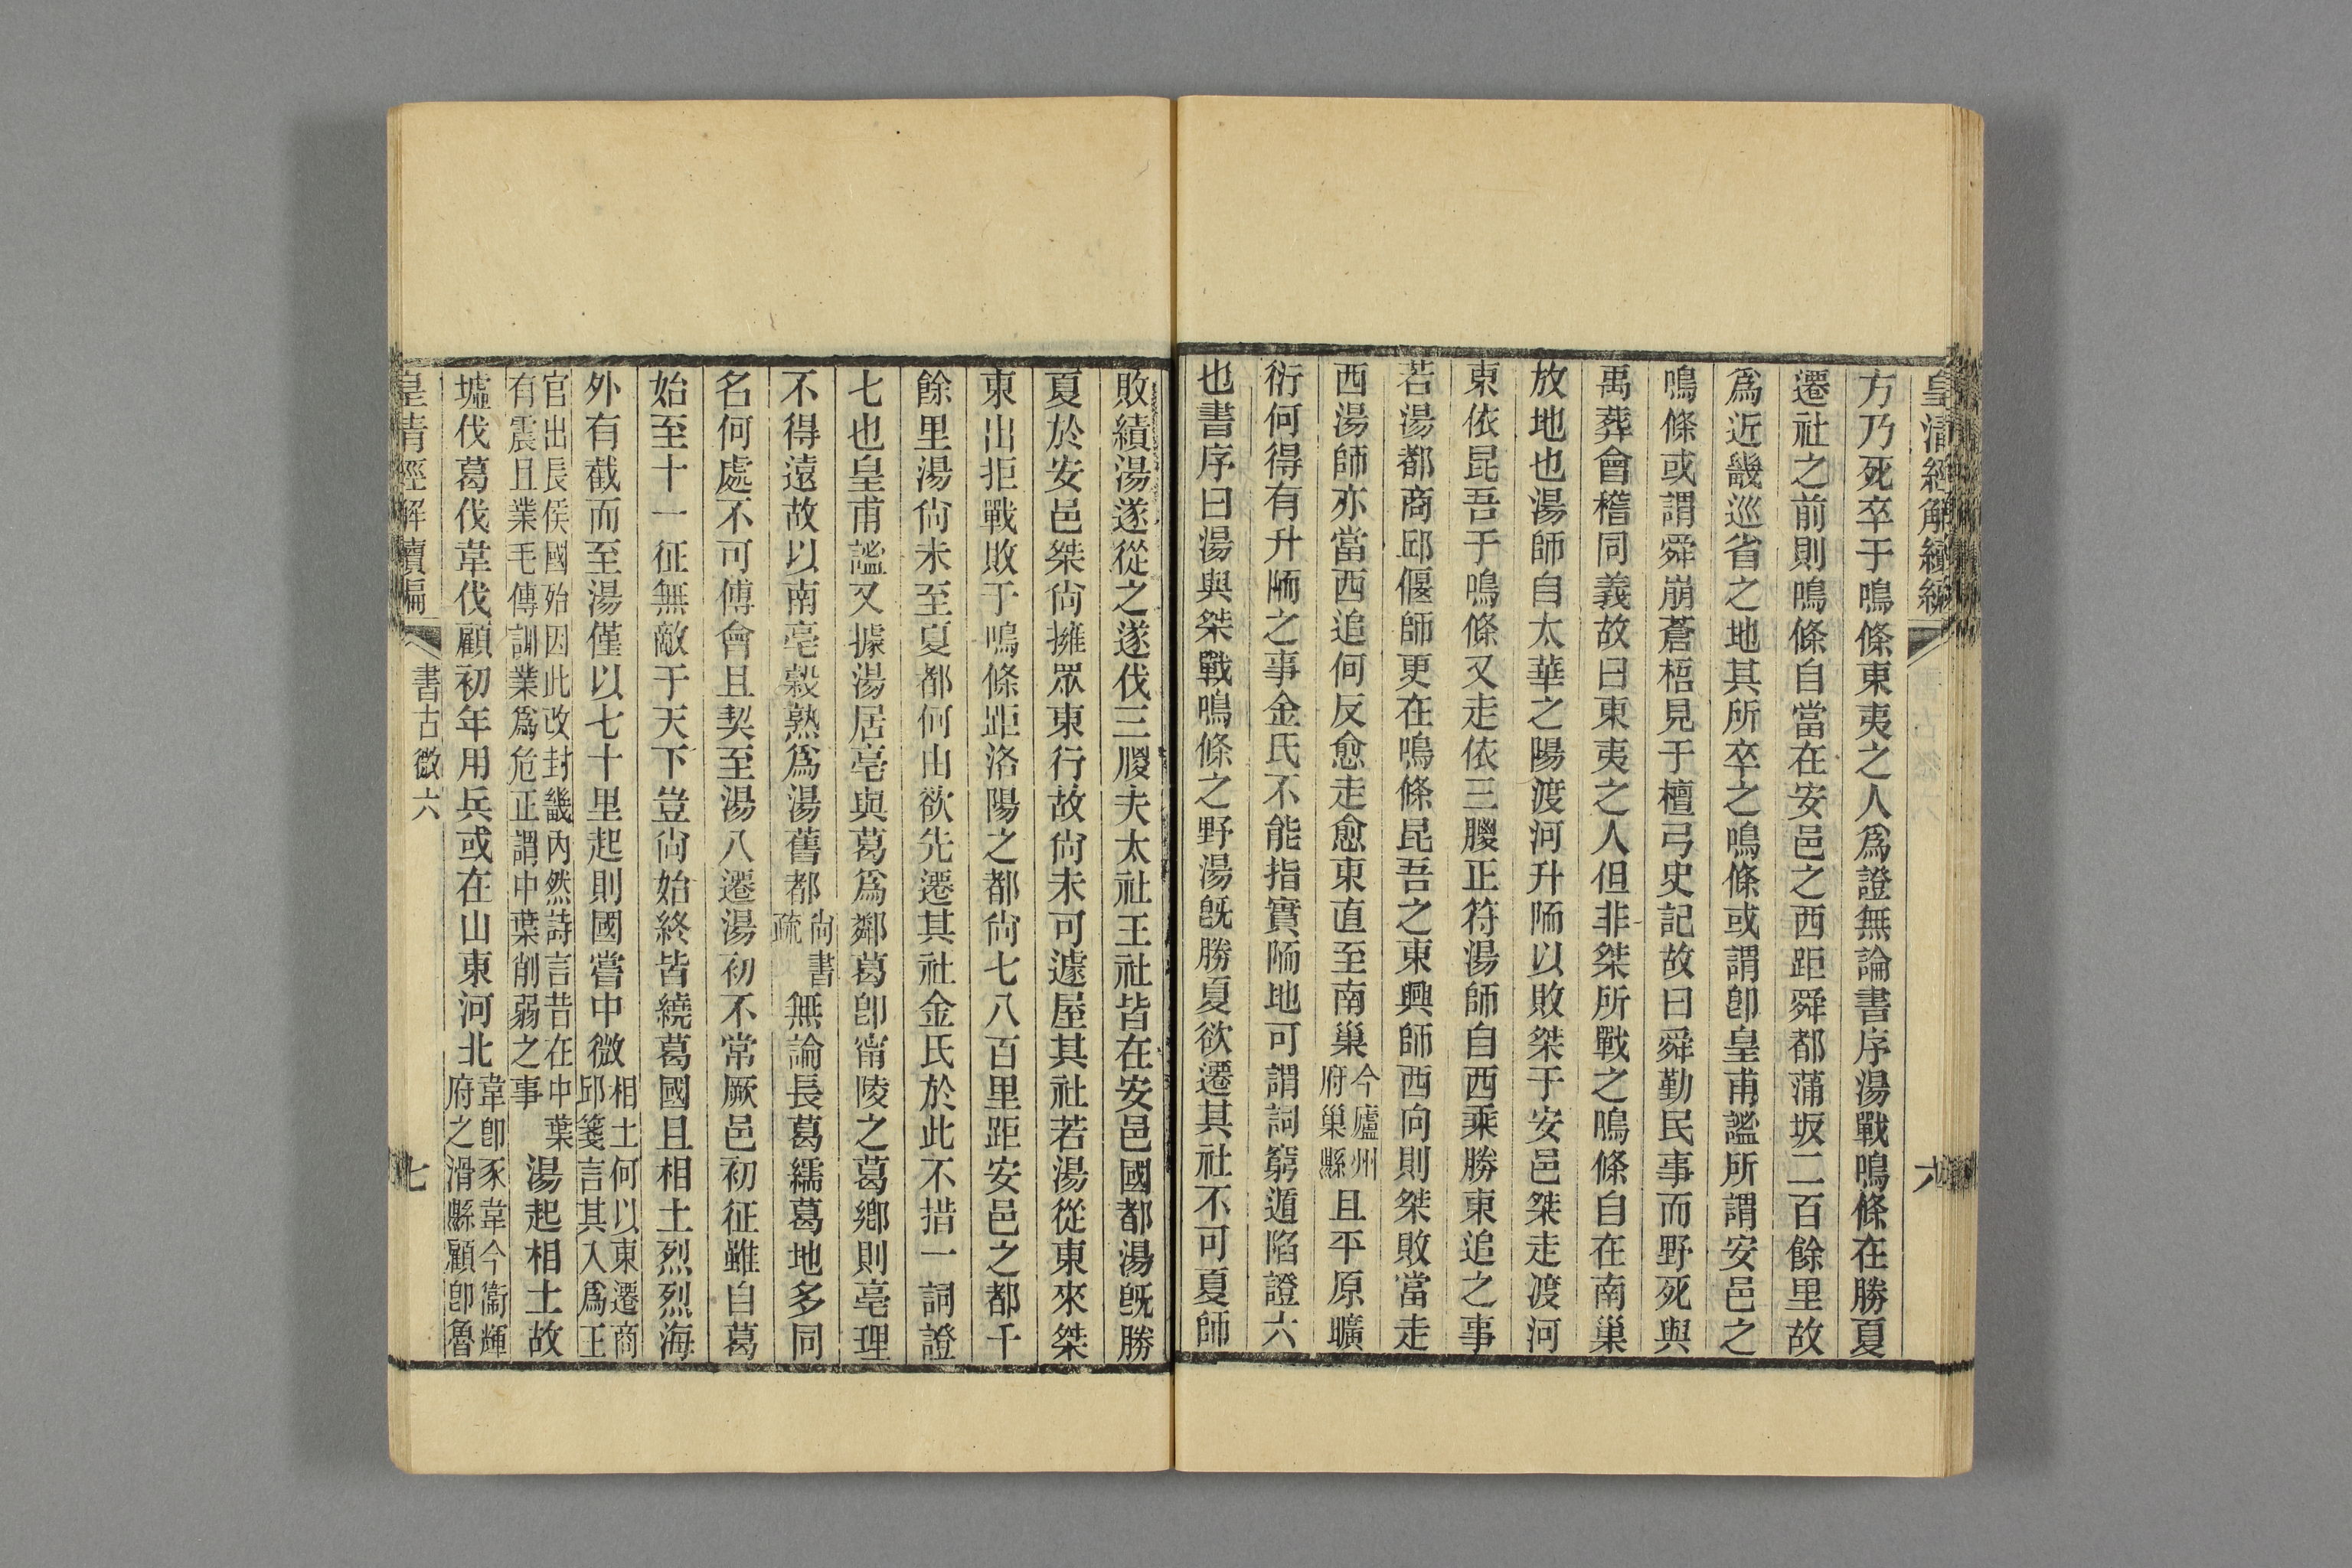 皇清經解續編
六
方乃死卒于鳴條東夷之人爲證無論書序湯戰鳴條在勝夏
遷社之前則鳴條自當在安邑之西距舜都蒲坂二百餘里故
爲近畿巡省之地其所卒之鳴條或謂卽皇甫謐所謂安邑之
鳴條或謂舜崩蒼梧見于檀弓史記故曰舜勤民事而野死與
禹葬會稽同義故曰東夷之人但非桀所戰之鳴條自在南巢
放地也湯師自太華之陽渡河升陑以敗桀于安邑桀走渡河
東依昆吾于鳴條又走依三朡正符湯師自西乘勝東追之事
若湯都商邱偃師更在鳴條昆吾之東興師西向則桀敗當走
西湯師亦當西追何反愈走愈東直至南巢今廬州府巢縣且平原曠
衍何得有升陑之事金氏不能指實陑地可謂詞窮遁陷證六
也書序曰湯與桀戰鳴條之野湯旣勝夏欲遷其社不可夏師
敗績湯遂從之遂伐三朡夫太社王社皆在安邑國都湯旣勝
夏於安邑桀尙擁眾東行故尙未可遽屋其社若湯從東來桀
東出拒戰敗于鳴條距洛陽之都尙七八百里距安邑之都千
餘里湯尙未至夏都何由欲先遷其社金氏於此不措一詞證
七也皇甫謐又據湯居亳與葛爲鄰葛卽甯陵之葛鄉則亳理
不得遠故以南亳榖熟爲湯舊都尙書疏無論長葛繻葛地多同
名何處不可傅會且契至湯八遷湯初不常厥邑初征雖自葛
始至十一征無敵于天下豈尙始終皆繞葛國且相土烈烈海
外有截而至湯僅以七十里起則國嘗中微相土何以東遷商邱箋言其入爲王
官出長侯國殆因此改封畿內然詩言昔在中葉有震且業毛傳訓業爲危正謂中葉削弱之事湯起相土故
墟伐葛伐韋伐顧初年用兵或在山東河北韋卽豕韋今衞輝府之滑縣顧卽魯
皇清經解續編
書古微六
七